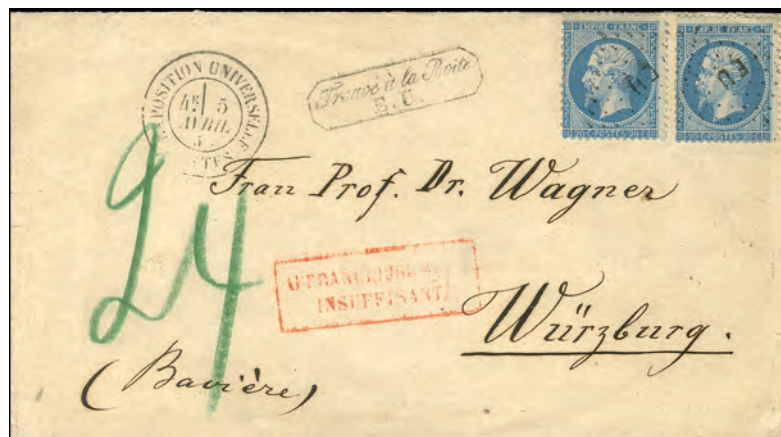 EXPOSITION UNIVERSELLE
4E 5
AVRIL
POSTES
Trouvé à la Boîte
E. U.
EMPIRE FRANC
20C POSTES 20C
EU
EMPIRE FRANC
20C POSTES 20C
EU
24
Frau Prof. Dr. Wagner
AFFRANCHISSEMENT
INSUFFISANT
Würzburg.
(Bavière)